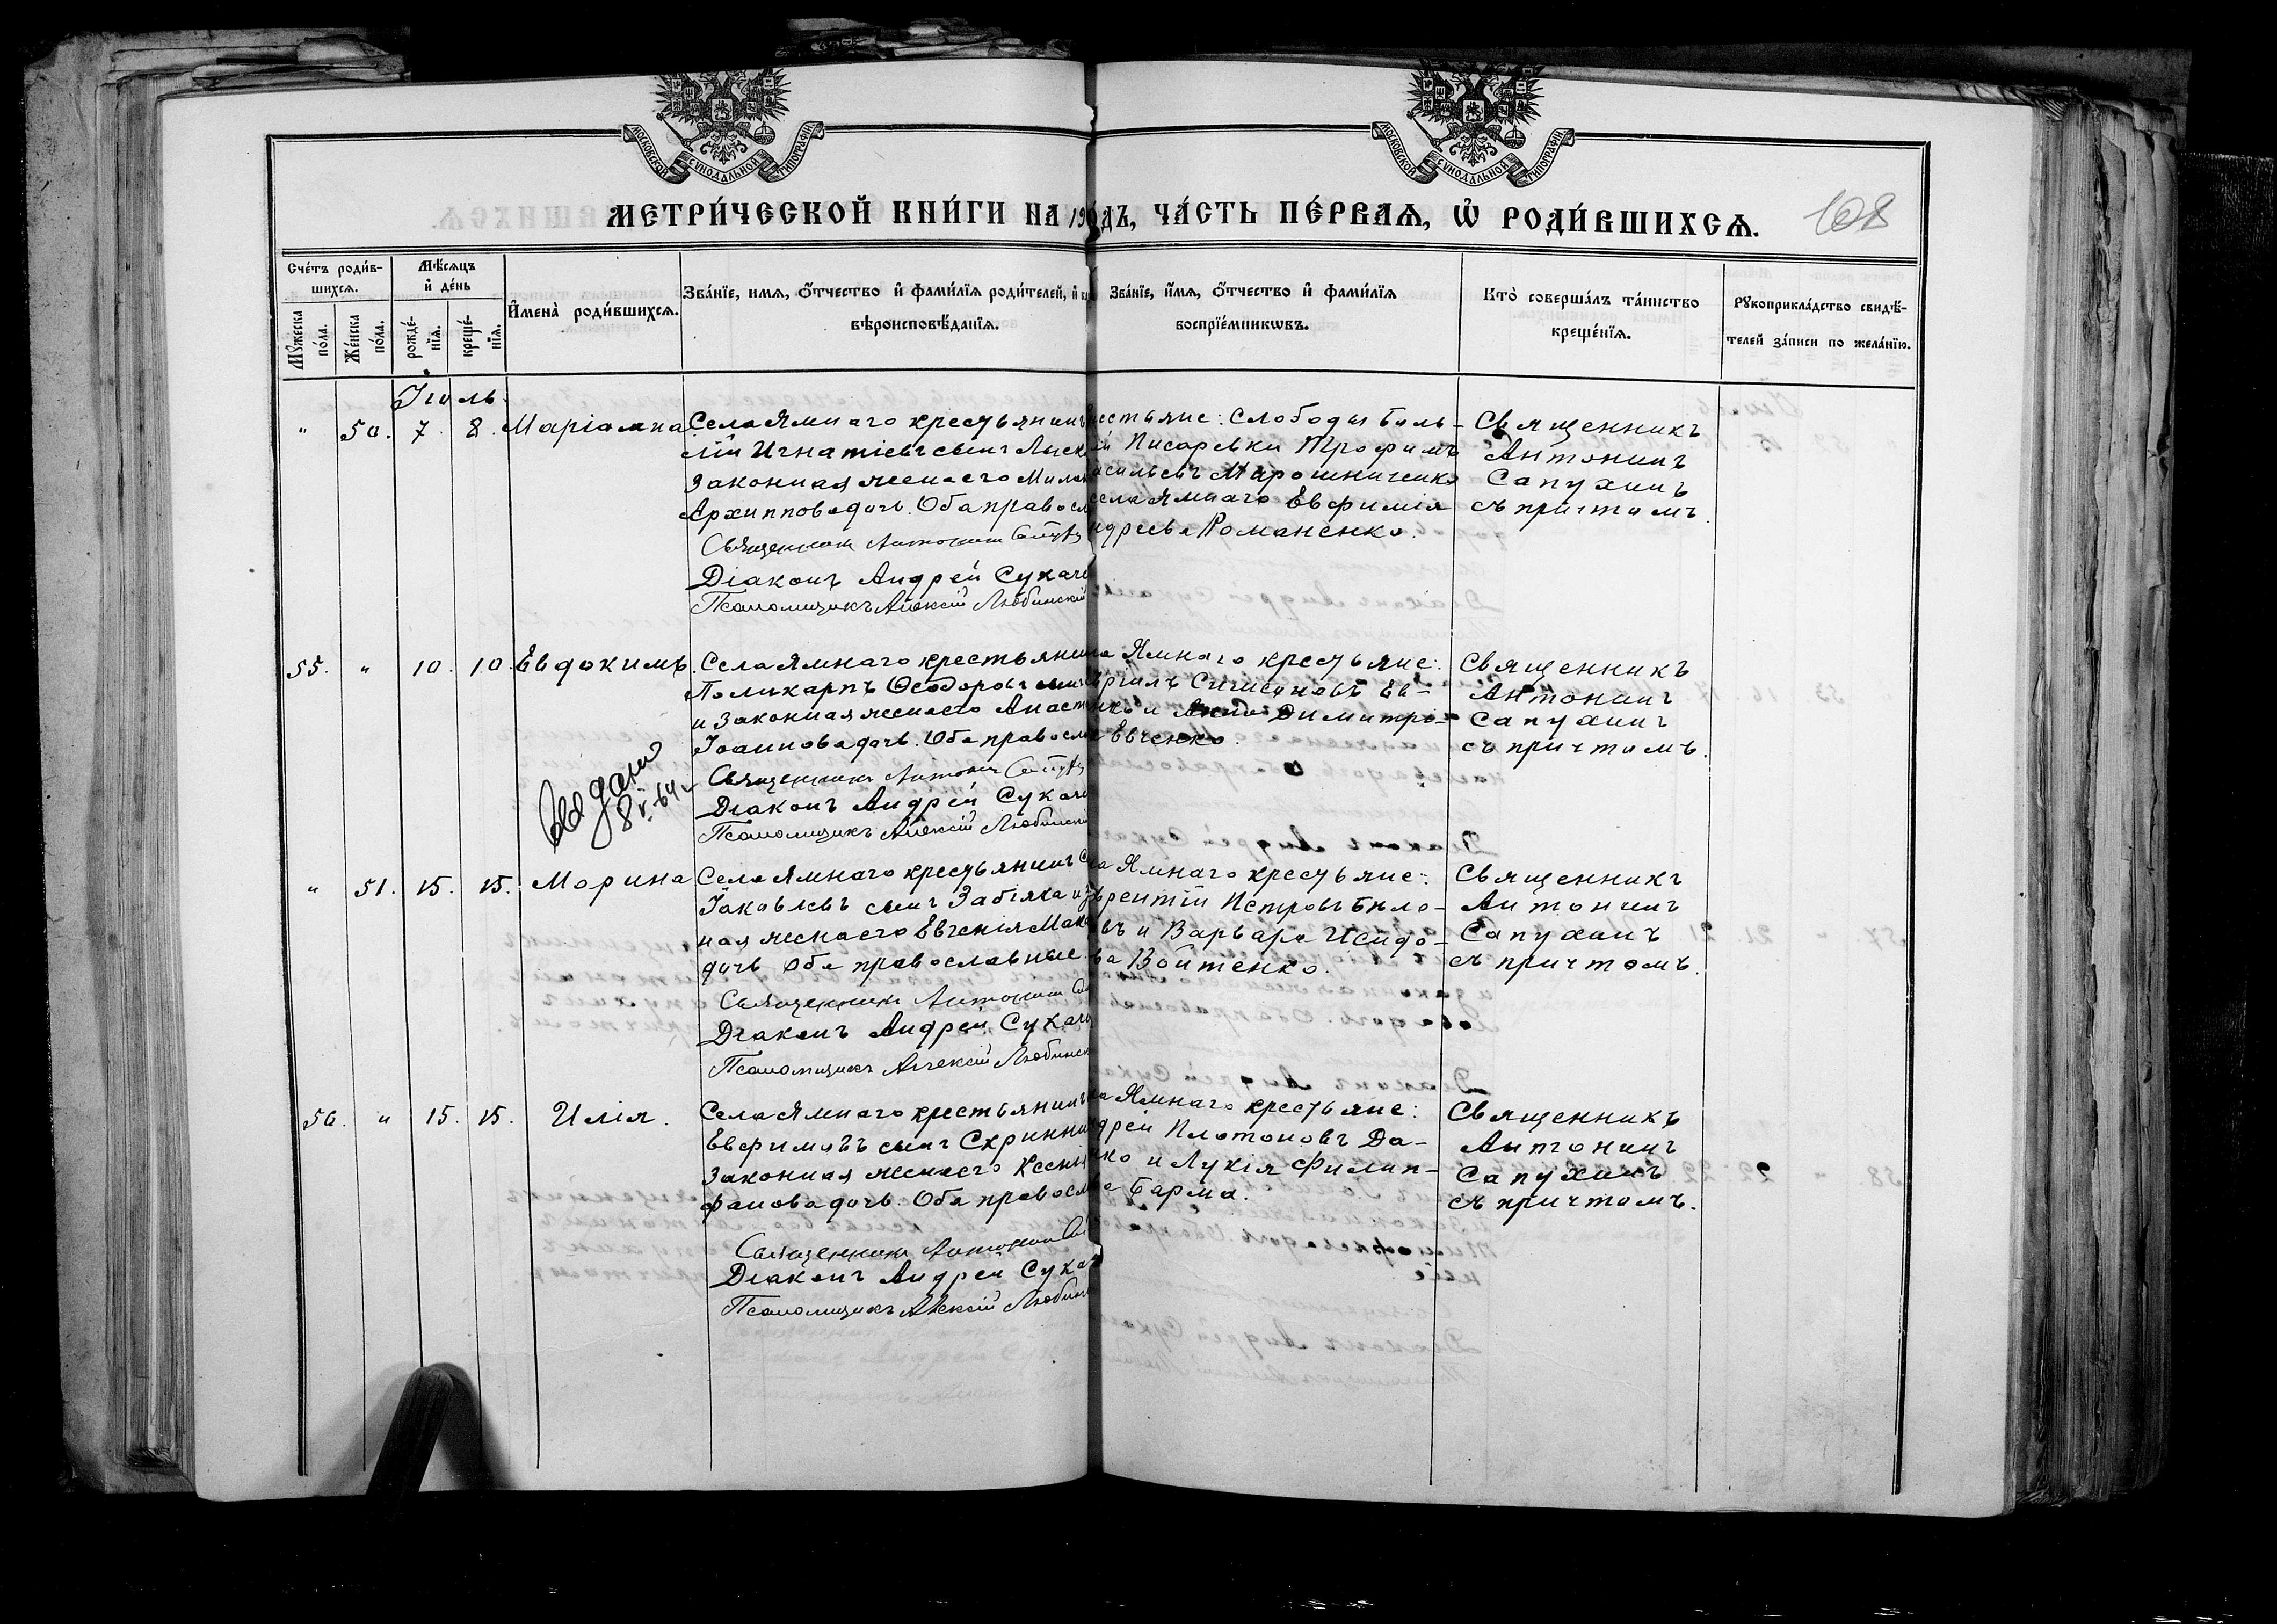 МОСКОВСКОЙ СѴНОДАЛЬНОЙ ТИПОГРАФІИ
МОСКОВСКОЙ СѴНОДАЛЬНОЙ ТИПОГРАФІИ
МЕТРИ́ЧЕСКОЙ КНИ́ГИ НА 19 ДЪ, ЧА́СТЬ ПЕ́РВАЯ, Ѡ҆ РОДИ́ВШИХСЯ.
108
Сче́тъ роди́в-
шихся.
Мꙋ́жеска по́ла.
Же́нска по́ла.
Мѣ́сяцъ
и҆ де́нь
рожде́-
нїя.
креще́-
нїя.
И҆мена̀ роди́вшихся.
Зва́нїе, имя, ѻ҆́тчество и҆ фами́лїя роди́телей, и҆
вѣроисповѣ́данїя.
Зва́нїе, и҆́мя, ѻ҆́тчество и҆ фами́лїя
воспрїе́мникѡвъ.
Кто̀ соверша́лъ та́инство
креще́нїя.
Рꙋкоприкла́дство свидѣ́-
телей за́писи по жела́нїю.
Іюль.
" 50. 7 8. Маріамна
Села Ямнаго крестьянинъ
лій Игнатіевъ сынъ Лыск
законная жена его Милан
Архиппова дочь. Оба правосл
Священникъ Антонин Сапух
Діаконъ Андрей Сукаче
Псаломщикъ Алексій Любинскій
рестьяне: Слободы Боль-
й Писаревки Трофимъ
асильевъ Мирошниченко
села Ямнаго Евфимія
ндреева Романенко.
Священникъ
Антонинъ
Сапухинъ
съ причтомъ.
55. " 10. 10. Евдокимъ.
Села Ямнаго крестьянин
Поликарпъ Ѳеодоровъ сынъ
и законная жена его Анаст
Іоаннова дочь. Оба правосл
Священникъ Антонин Сапух
Діаконъ Андрей Сукаче
Псаломщикъ Алексій Любинскій
Выдано
8 V-64
а Ямнаго крестьяне:
вріилъ Симеоновъ Ев-
нко и Анна Димитрі-
Евченко.
Священникъ
Антонинъ
Сапухинъ
съ причтомъ.
" 51. 15. 15. Марина
Села Ямнаго крестьянинъ
Іаковлевъ сынъ Забіяка и з
ная жена его Евгенія Мака
дочь Оба православные.
Священникъ Антонин Сап
Діаконъ Андрей Сукаче
Псаломщикъ Алексій Любинск
а Ямнаго крестьяне:
врентій Петровъ Било-
въ и Варвара Исидо-
ва Войтенко.
Священникъ
Антонинъ
Сапухинъ
съ причтомъ.
56. " 15. 15. Илія.
Села Ямнаго крестьянинъ
Евфимовъ сынъ Скринни
законная жена его Ксенія
фанова дочь. Оба правосл
Священникъ Антонин Са
Діаконъ Андрей Сукач
Псаломщикъ Алексій Любин
а Ямнаго крестьяне:
дрей Платоновъ Да-
нко и Лукія Филип-
ва Барма.
Священникъ
Антонинъ
Сапухинъ
съ причтомъ.